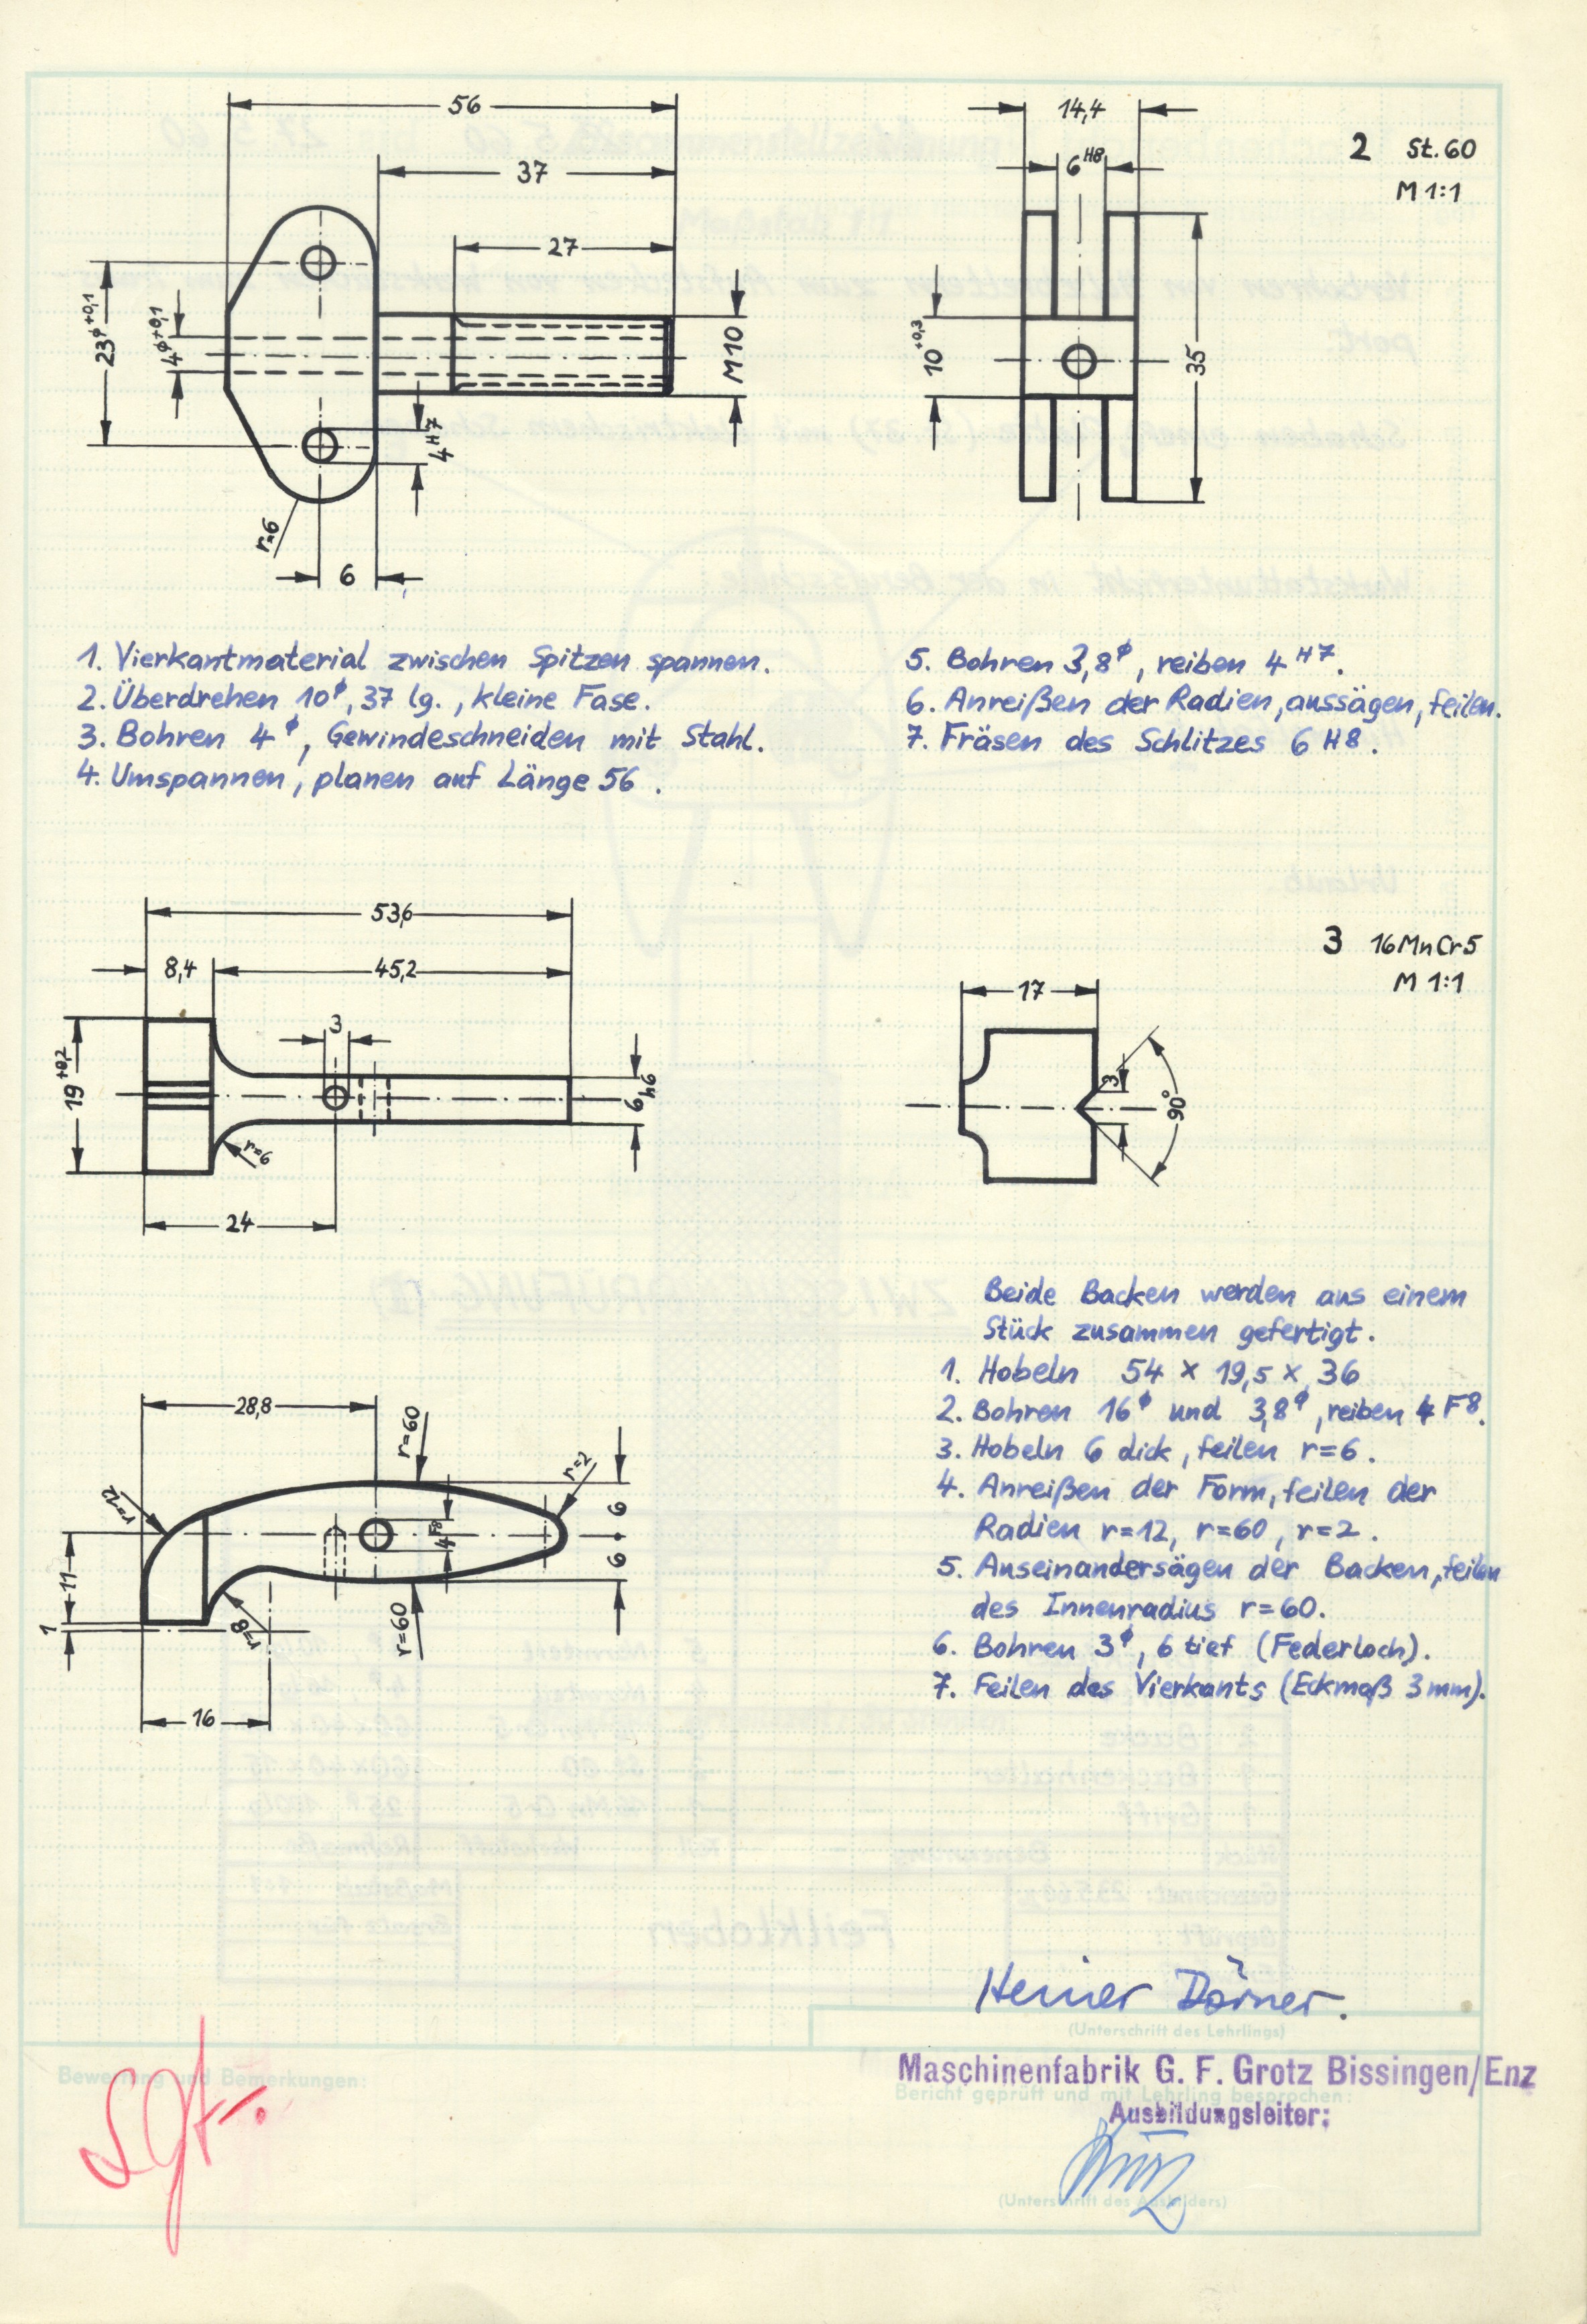 56
14,4
37
6 H8
2 St. 60
M 1:1
27
23 ϕ +0,1
4 ϕ +0,1
M10
10 +0,3
35
4 H7
r=6
6
1. Vierkantmaterial zwischen Spitzen spannen.
2. Überdrehen 10 ϕ, 37 lg., kleine Fase.
3. Bohren 4 ϕ, Gewindeschneiden mit Stahl.
4. Umspannen, planen auf Länge 56.
5. Bohren 3,8 ϕ, reiben 4 H7.
6. Anreißen der Radien, aussägen, feilen.
7. Fräsen des Schlitzes 6 H8.
53,6
8,4
45,2
3 16MnCr5
M 1:1
17
3
19 +0,2
6 h6
r=6
24
3
90°
Beide Backen werden aus einem
Stück zusammen gefertigt.
1. Hobeln 54 x 19,5 x 36
2. Bohren 16 ϕ und 3,8 ϕ, reiben 4 F8.
3. Hobeln 6 dick, feilen r=6.
4. Anreißen der Form, feilen der
Radien r=12, r=60, r=2.
5. Auseinandersägen der Backen, feilen
des Innenradius r=60.
6. Bohren 3 ϕ, 6 tief (Federloch).
7. Feilen des Vierkants (Eckmaß 3 mm).
28,8
r=60
r=2
r=12
6
4 F8
6
11
1
r=8
r=60
16
Heiner Dörner.
(Unterschrift des Lehrlings)
Maschinenfabrik G. F. Grotz Bissingen/Enz
Bewertung und Bemerkungen:
Bericht geprüft und mit Lehrling besprochen:
Ausbildungsleiter:
sgt-.
(Unterschrift des Ausbilders)